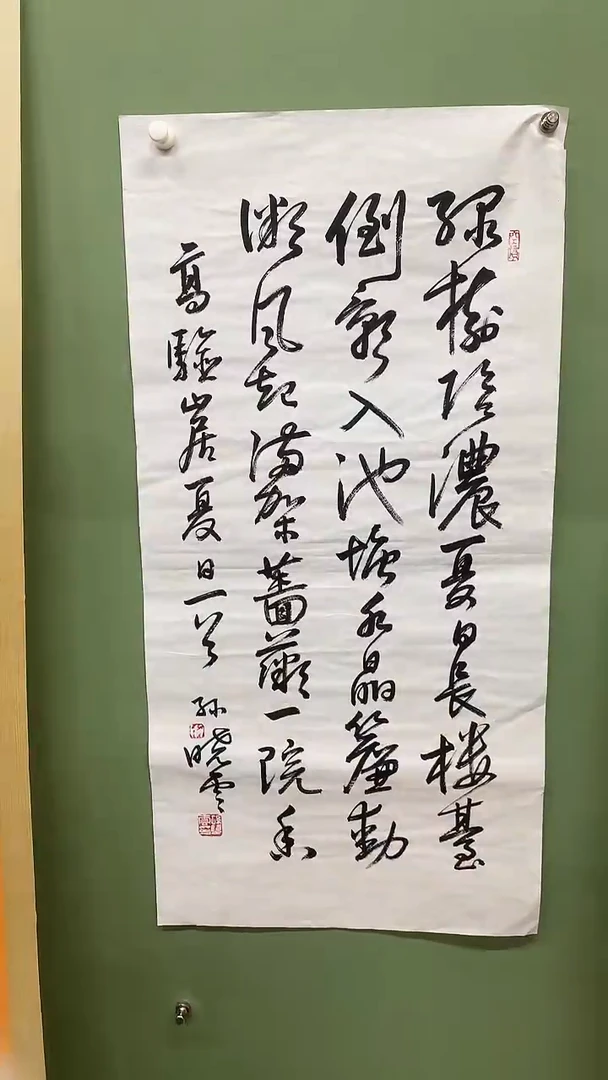 綠樹陰濃夏日長楼臺
倒影入池塘水晶簾動
微風起滿架薔薇一院香
高駢山居夏日一首
孫曉雲